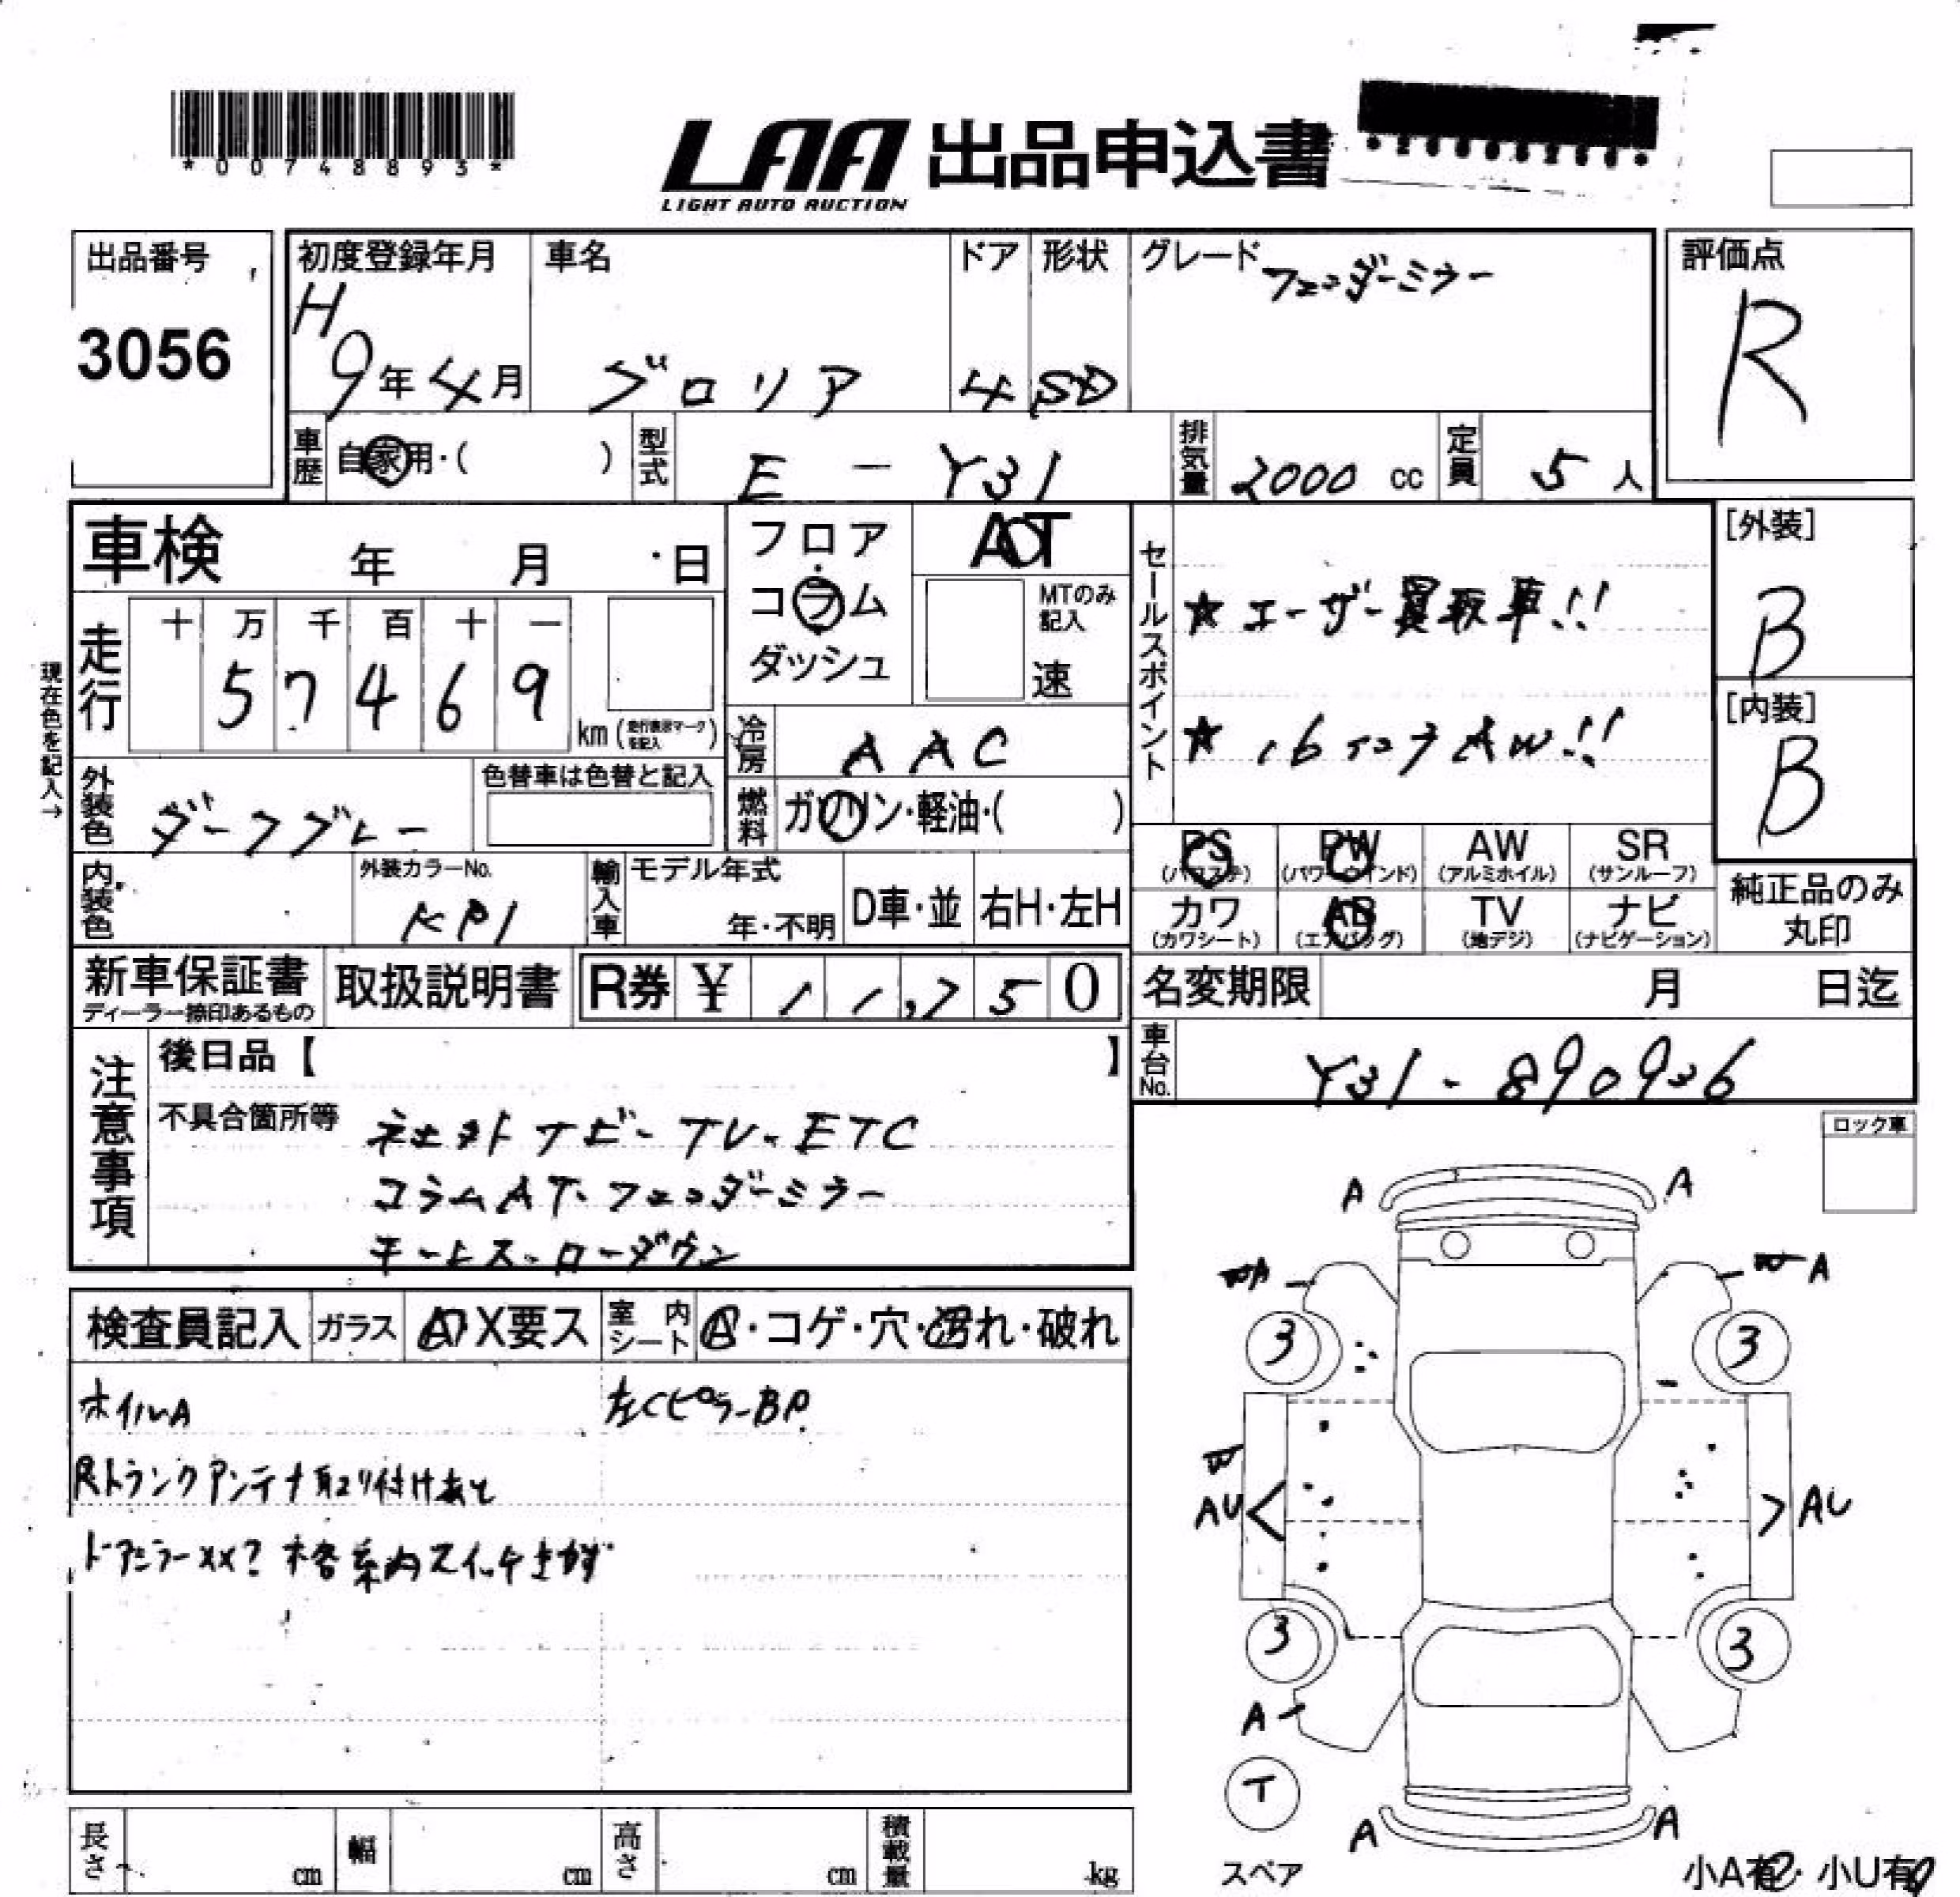 *00748893*
LAA 出品申込書
LIGHT AUTO AUCTION
出品番号
3056
初度登録年月
H9年4月
車名
グロリア
ドア
4
形状
SD
グレード
フェンダーミラー
評価点
R
車歴 自家用・( )
型式 E-Y31
排気量 2000 cc
定員 5 人
車検 年 月 日
フロア
コラム
ダッシュ
AT
MTのみ記入
速
走行
十 万 千 百 十 一
5 7 4 6 9
km (走行表示マークを記入)
現在色を記入→
冷房 AAC
燃料 ガソリン・軽油・( )
セールスポイント
★ユーザー買取車!!
★16インチAW!!
[外装]
B
[内装]
B
外装色 ダークグレー
色替車は色替と記入
内装色
外装カラーNo.
KP1
輸入車
モデル年式
年・不明
D車・並
右H・左H
PS (パワステ)
PW (パワーウインド)
AW (アルミホイル)
SR (サンルーフ)
カワ (カワシート)
AB (エアバッグ)
TV (地デジ)
ナビ (ナビゲーション)
純正品のみ
丸印
新車保証書
ディーラー捺印あるもの
取扱説明書
R券 ¥ 11,750
名変期限 月 日迄
車台No. Y31-890936
注意事項
後日品【 】
不具合箇所等
社外ナビ・TV・ETC
コラムAT・フェンダーミラー
キーレス・ローダウン
ロック車
検査員記入
ガラス
A・X要ス
室内シート
A・コゲ・穴・汚れ・破れ
ホイルA
左CピラーBP
Rトランクアンテナ取り付けあと
ドアミラーxx? 格 スイッチきかず
A A
A A
3 3
AU AU
3 3
A
T
スペア
A A
小A有・小U有
長さ cm
幅 cm
高さ cm
積載量 kg